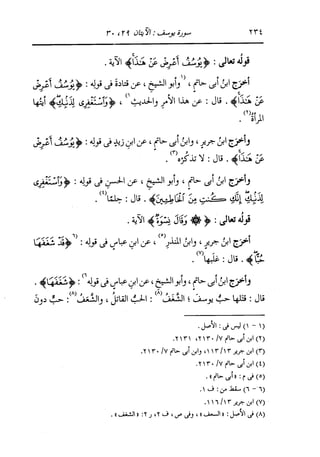 ٢٣٤ سورة يوسف : الآيتان ٢٩، ٣٠
قولُه تعالى : ﴿يُوسُفُ أَعْرِضْ عَنْ هَٰذَا﴾ الآية .
أخرَج ابنُ أبى حاتمٍ ، (١وأبو الشيخِ ، عن قتادةَ فى قولِه : ﴿يُوسُفُ أَعْرِضْ
عَنْ هَٰذَا﴾ . قال : عن هذا الأمرِ والحديثِ١) ، ﴿وَٱسْتَغْفِرِى لِذَنۢبِكِ﴾ أيتُها
المرأةُ(٢) .
وأخرَج ابنُ جريرٍ ، وابنُ أبى حاتمٍ ، عن ابنِ زيدٍ فى قولِه : ﴿يُوسُفُ أَعْرِضْ
عَنْ هَٰذَا﴾ . قال : لا تذكُرْه(٣) .
وأخرَج ابنُ أبى حاتمٍ ، وأبو الشيخِ ، عن الحسنِ فى قولِه : ﴿وَٱسْتَغْفِرِى
لِذَنۢبِكِ إِنَّكِ كُنتِ مِنَ ٱلْخَاطِـِٔينَ﴾ . قال : حِلمًا(٤) .
قولُه تعالى : ﴿۞ وَقَالَ نِسْوَةٌ﴾ الآية .
أخرَج ابنُ جريرٍ ، وابنُ المنذرِ(٥) ، عن ابنِ عباسٍ فى قولِه : (٦﴿قَدْ شَغَفَهَا
حُبًّا﴾ . قال : غلَبها(٧) .
وأخرَج ابنُ أبى حاتمٍ ، وأبو الشيخِ ، عن ابنِ عباسٍ فى قولِه٦) : ﴿شَغَفَهَا﴾ .
قال : قتَلها حبُّ يوسفَ ؛ الشَّغَفُ(٨) : الحبُّ القاتلُ ، والشَّعَفُ(٨) : حبٌّ دونَ
(١ - ١) ليس فى : الأصل .
(٢) ابن أبى حاتم ٧/ ٢١٣٠، ٢١٣١.
(٣) ابن جرير ١٣/ ١١٣، وابن أبى حاتم ٧/ ٢١٣٠.
(٤) ابن أبى حاتم ٧/ ٢١٣٠.
(٥) فى م : «أبى حاتم» .
(٦ - ٦) سقط من : ف ١.
(٧) ابن جرير ١٣/ ١١٦.
(٨) فى الأصل : «السعف» ، وفى ص ، ف ٢، ر ٢: «الشغف» .